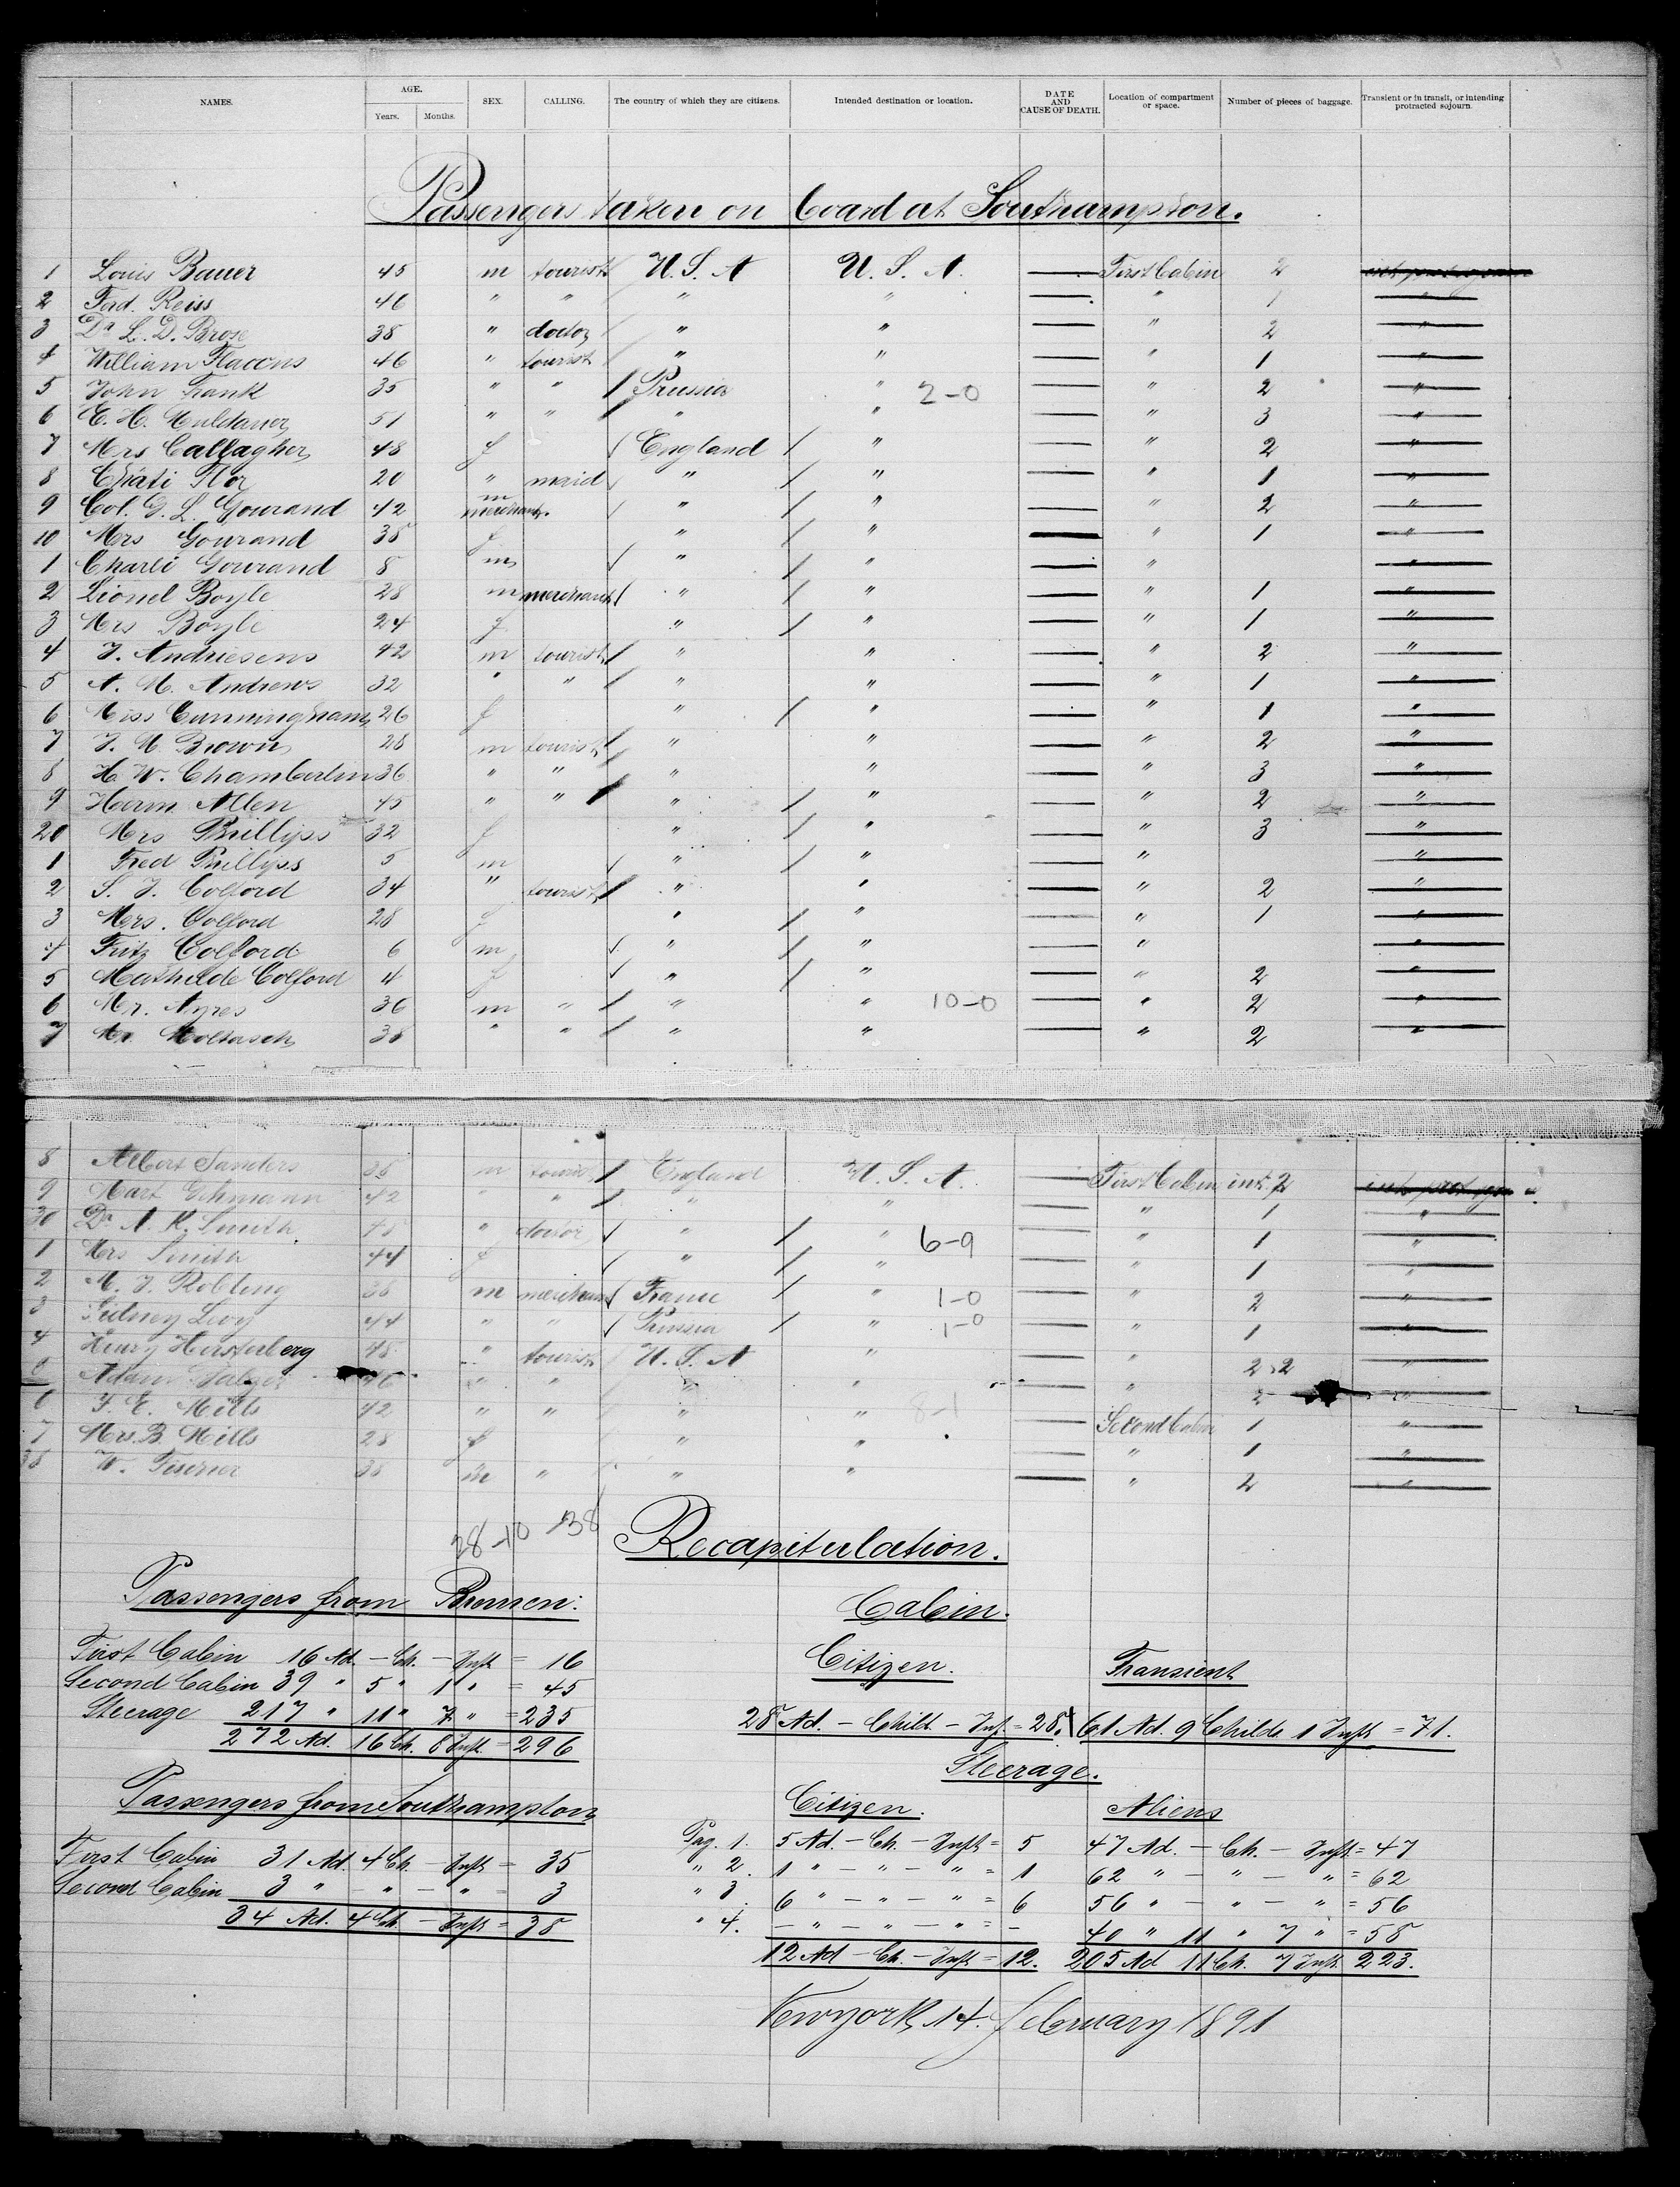 NAMES. AGE. Years. Months. SEX. CALLING. The country of which they are citizens. Intended destination or location. DATE AND CAUSE OF DEATH. Location of compartment or space. Number of pieces of baggage. Transient or in transit, or intending protracted sojourn.
Passengers taken on board at Southampton.
1 Louis Bauer 45 m tourist U. S. A U. S. A. — First Cabin 2
2 Ferd. Reiss 46 " " " " — " 1 "
3 Dr L. D. Brose 38 " doctor " " — " 2 "
4 William Flaccus 46 " tourist " " — " 1 "
5 John Frank 35 " " Prussia " 2-0 — " 2 "
6 E. H. 51 " " " " — " 3 "
7 Mrs Callagher 48 f England " — " 2 "
8 Flor 20 " maid " " — " 1 "
9 Col. G. L. Gourand 42 m merchant " " — " 2 "
10 Mrs Gourand 38 f " " — " 1 "
1 Charli Gourand 8 m " " — " "
2 Lionel Boyle 28 m merchant " " — " 1 "
3 Mrs Boyle 24 f " " — " 1 "
4 J. Andriesens 42 m tourist " " — " 2 "
5 A. M. Andrews 32 " " " " — " 1 "
6 Miss Cunningham 26 f " " — " 1 "
7 J. M Brown 28 m tourist " " — " 2 "
8 H. W. Chamberlin 36 " " " " — " 3 "
9 Herm. Allen 45 " " " " — " 2 "
20 Mrs Phillipss 32 f " " — " 3 "
1 Fred Phillipss 5 m " " — " "
2 S. J. Colford 34 " tourist " " — " 2 "
3 Mrs. Colford 28 f " " — " 1 "
4 Fritz Colford 6 m " " — " "
5 Mathilde Colford 4 f " " — " 2 "
6 Mr. Ayres 36 m " " " 10-0 — " 2 "
7 Mr. 38 " " " " — " 2 "
8 Albert Sanders 35 m tourist England U. S. A. — First Cabin 2
9 Gehmann 42 " " " " — " 1 "
30 Dr A. K. Smith 48 " doctor " " 6-9 — " 1 "
1 Mrs Smith 44 f " " — " 1 "
2 M. J. Robling 38 m merchant France " 1-0 — " 2 "
3 Sidney Levy 44 " " Prussia " 1-0 — " 1 "
4 Henry Hersterberg 48 " tourist U. S. A " — " 2 "
Adam 46 " " " " — " 2 "
6 F. E. Mills 42 " " " " 8-1 — Second Cabin 1 "
7 Mrs. B. Mills 28 f " " — " 1 "
38 W. 38 m " " " — " 2 "
28-10-38
Recapitulation.
Passengers from Bremen:
First Cabin 16 Ad. — Ch. — Inft = 16
Second Cabin 39 " 5 " 1 " = 45
Steerage 217 " 11 " 7 " = 235
272 Ad. 16 Ch. 8 Inft. = 296
Passengers from Southampton
First Cabin 31 Ad. 4 Ch. — Inft = 35
Second Cabin 3 " — " — " = 3
34 Ad. 4 Ch. — Inft = 38
Cabin.
Citizen. Transient
28 Ad. — Child. — Inf. = 28. 61 Ad. 9 Childr 1 Inft = 71.
Steerage.
Citizen. Aliens
Pag. 1. 5 Ad. — Ch. — Inft = 5 47 Ad. — Ch. — Inft. = 47
" 2. 1 " — " — " = 1 62 " — " — " = 62
" 3. 6 " — " — " = 6 56 " — " — " = 56
" 4. — " — " — " = — 40 " 11 " 7 " = 58
12 Ad — Ch. — Inft = 12. 205 Ad 11 Ch. 7 Inft. 223.
Newyork, 14. february 1891